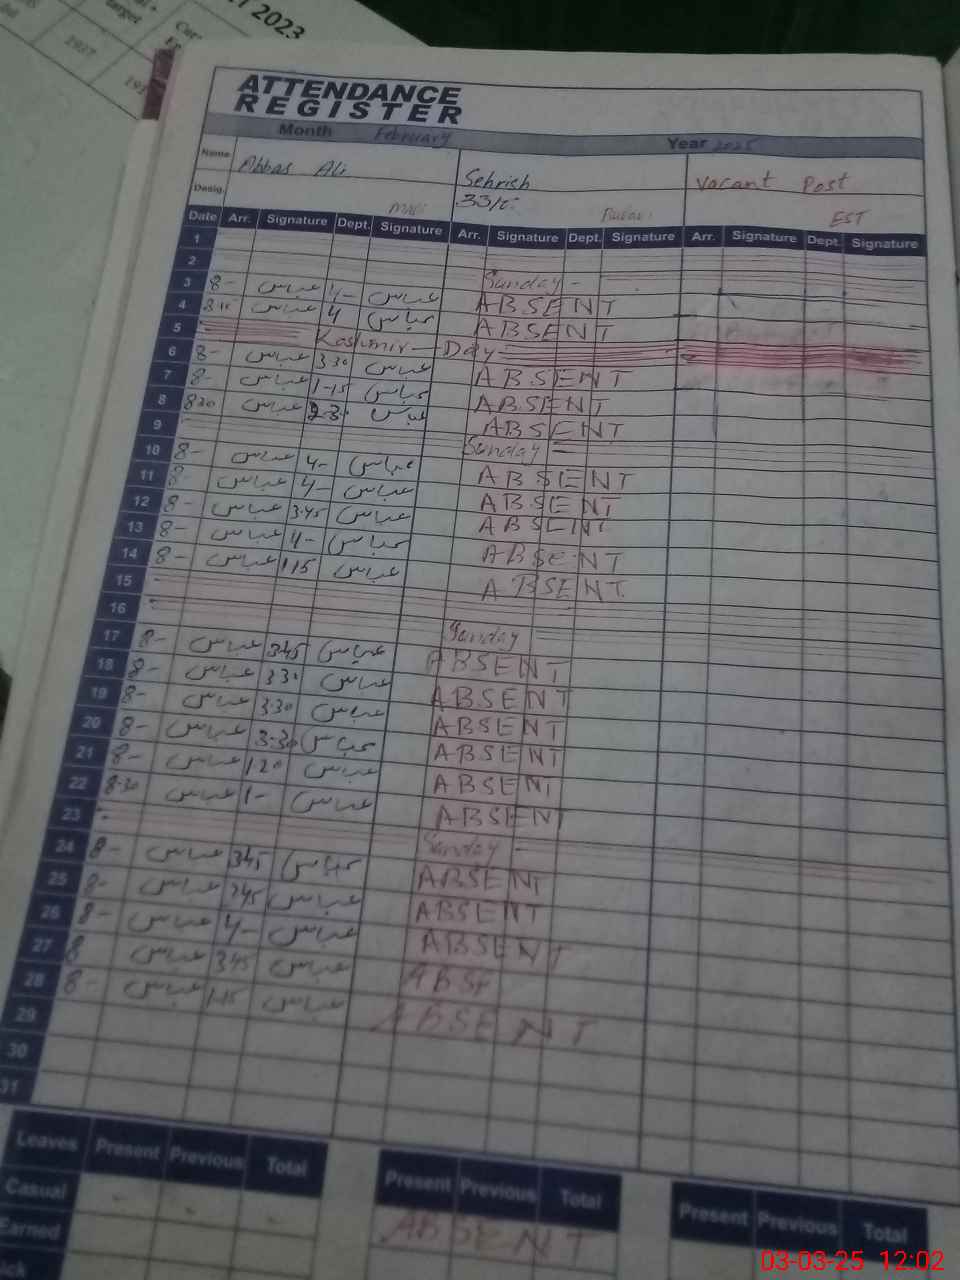 2023
target
1927
ATTENDANCE
REGISTER
Month February Year 2025
Name Abbas Ali Sehrish Vacant Post
Desig. Mali EST
Date Arr. Signature Dept. Signature Arr. Signature Dept. Signature Arr. Signature Dept. Signature
1
2 Sunday -
3 8- عباس 4- عباس ABSENT
4 عباس 4 عباس ABSENT
5 Kashmir Day
6 8- عباس 3 30 عباس ABSENT
7 8- عباس 1-15 عباس ABSENT
8 8 30 عباس عباس ABSENT
9 Sunday
10 8- عباس 4- عباس ABSENT
11 8- عباس 4- عباس ABSENT
12 8- عباس 3.45 عباس ABSENT
13 8- عباس 4- عباس ABSENT
14 8- عباس 1 15 عباس ABSENT
15
16 Sunday
17 8- عباس 345 عباس ABSENT
18 8- عباس 330 عباس ABSENT
19 8- عباس 3 30 عباس ABSENT
20 8- عباس 3-30 عباس ABSENT
21 8- عباس 120 عباس ABSENT
22 8-30 عباس 1- عباس ABSENT
23 Sunday
24 8- عباس 345 عباس ABSENT
25 8- عباس 345 عباس ABSENT
26 8- عباس 4- عباس ABSENT
27 8 عباس 345 عباس ABSE
28 8- عباس 1-15 عباس ABSENT
29
30
31
Leaves Present Previous Total Present Previous Total Present Previous Total
Casual
Earned ABSENT
03-03-25 12:02